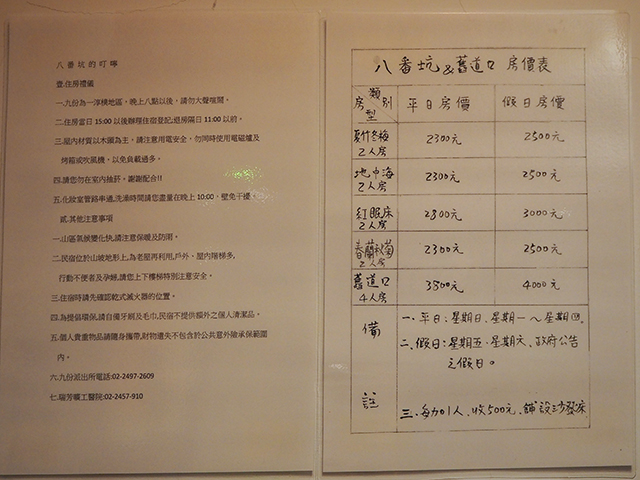 八番坑的叮嚀
壹.住房禮儀
一.九份為一淳樸地區，晚上八點以後，請勿大聲喧鬧。
二.住房當日 15:00 以後辦理住宿登記;退房隔日 11:00 以前。
三.屋內材質以木頭為主，請注意用電安全，勿同時使用電磁爐及
烤箱或吹風機，以免負載過多。
四.請您勿在室內抽菸，謝謝配合!!
五.化妝室管路串通,洗澡時間請您盡量在晚上 10:00，壁免干擾。
貳.其他注意事項
一.山區氣候變化快,請注意保暖及防雨。
二.民宿位於山坡地形上,為老屋再利用,戶外、屋內階梯多,
行動不便者及孕婦,請您上下樓梯特別注意安全。
三.住宿時請先確認乾式滅火器的位置。
四.為提倡環保,請自備牙刷及毛巾,民宿不提供額外之個人清潔品。
五.個人貴重物品請隨身攜帶,財物遺失不包含於公共意外險承保範圍
內。
六.九份派出所電話:02-2497-2609
七.瑞芳礦工醫院:02-2457-910
八番坑&舊道口 房價表
房型 類別 平日房價 假日房價
夏竹冬梅 2人房 2300元 2500元
地中海 2人房 2300元 2500元
紅眠床 2人房 2800元 3000元
春蘭秋菊 2人房 2300元 2500元
舊道口 4人房 3800元 4000元
備註
一、平日:星期日、星期一～星期四。
二、假日:星期五、星期六、政府公告
之假日。
三、每加1人、收500元、鋪設沙發床